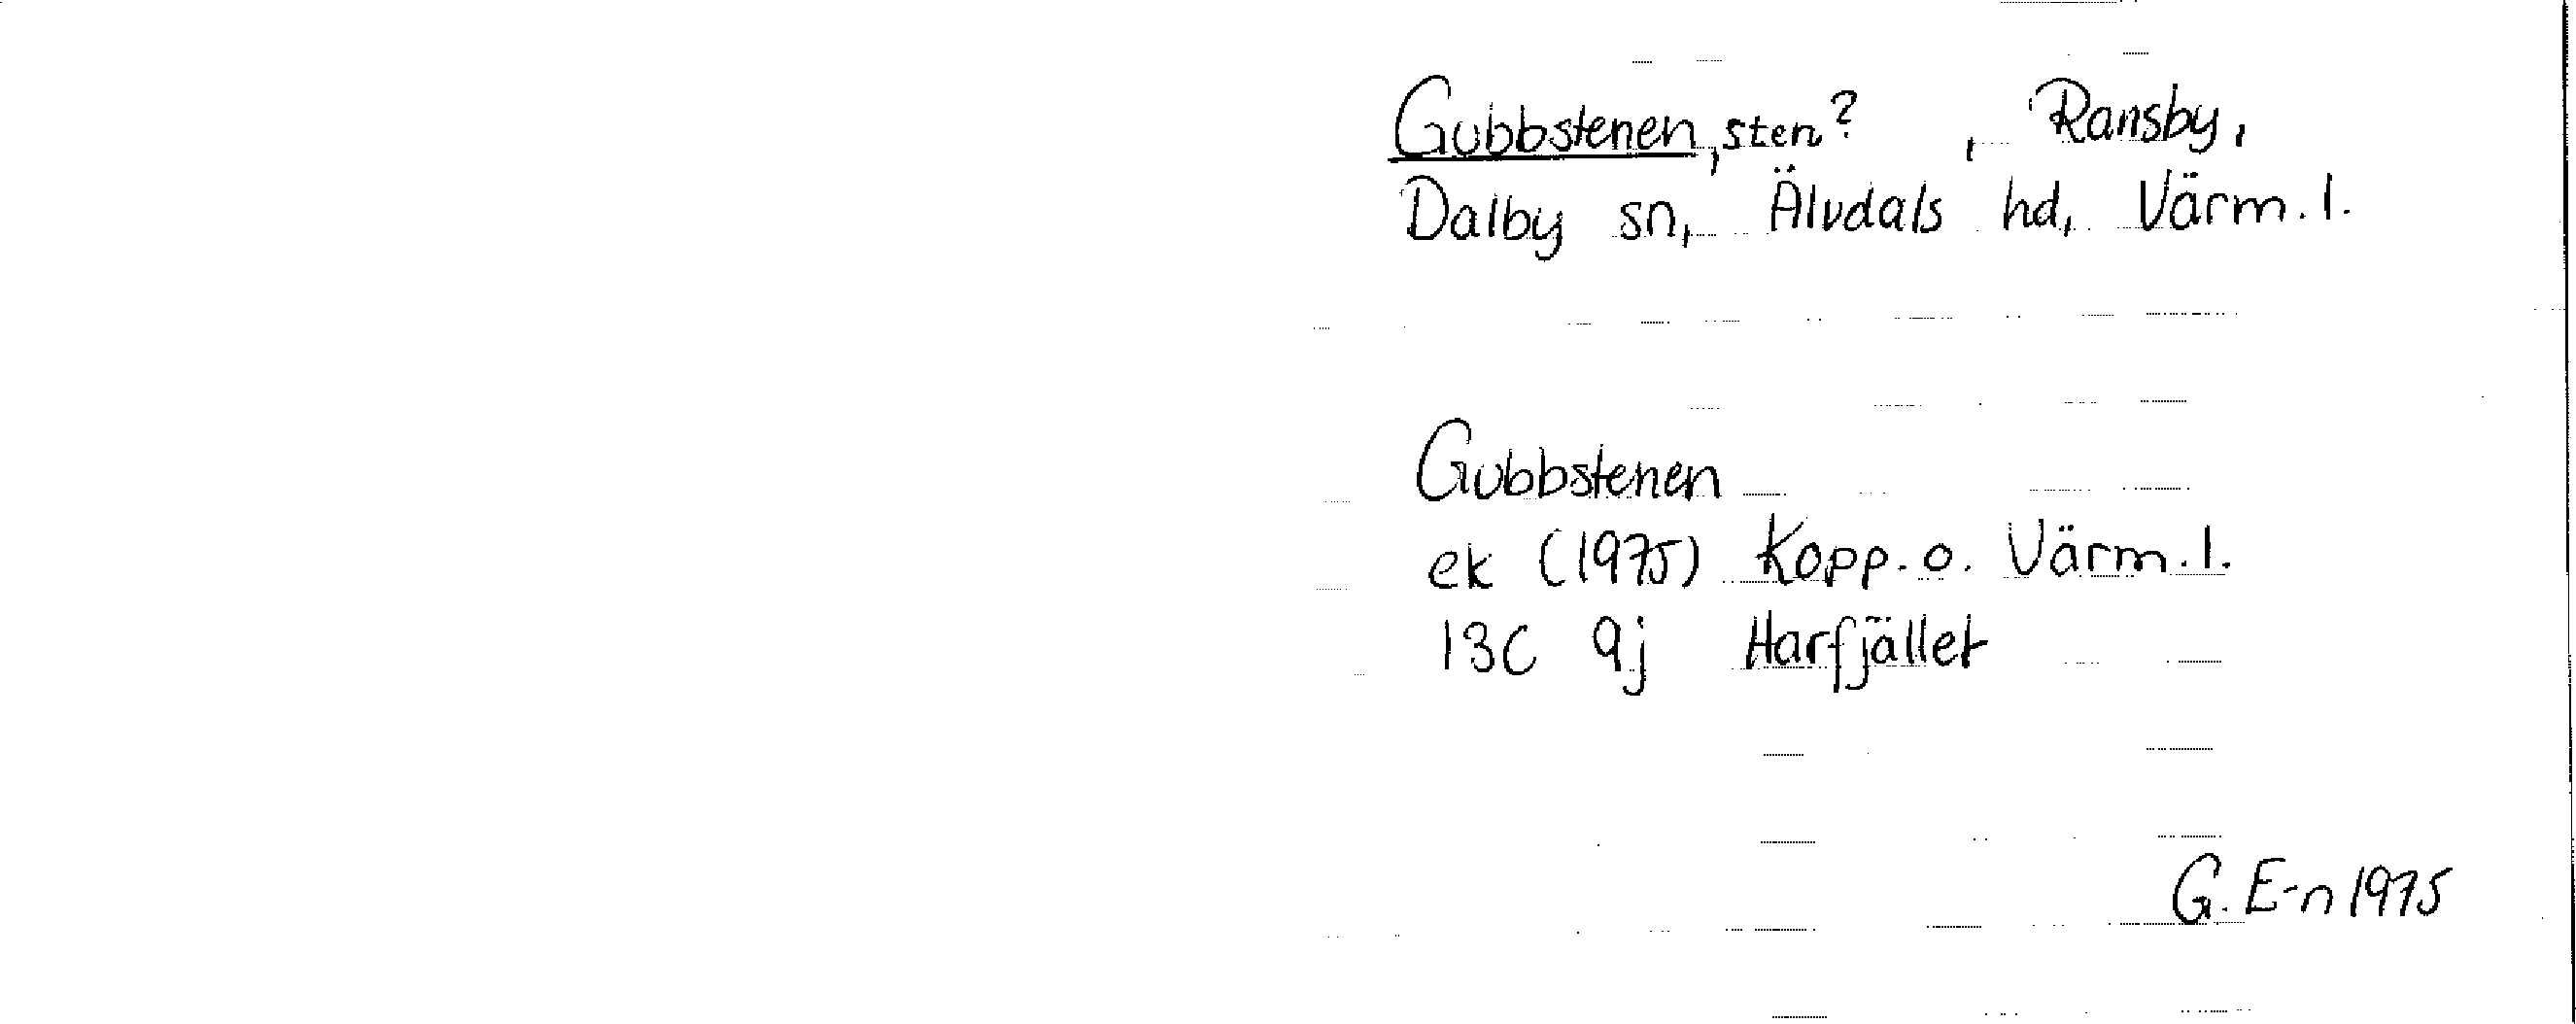 Gubbstenen, sten? , Ransby,
Dalby sn, Älvdals hd, Värm. l.
Gubbstenen
ek (1975) Kopp. o. Värm. l.
13C 9j Harfjället
G. E-n 1975